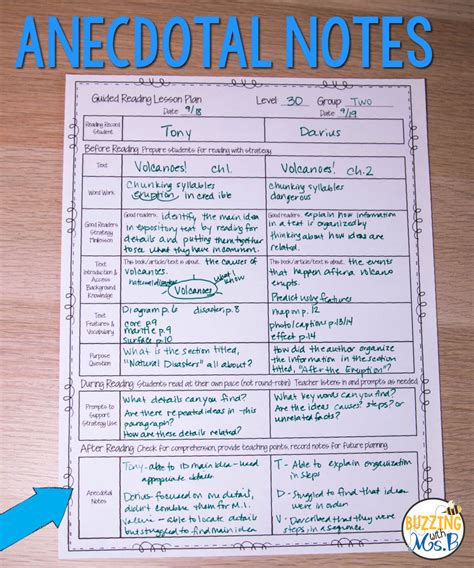 ANECDOTAL NOTES
Guided Reading Lesson Plan
Level 30 Group Two
Date 9/18
Date 9/19
Reading Record Student
Tony
Darius
Before Reading: Prepare students for reading with strategy
Text
Volcanoes! ch1.
Volcanoes! ch.2
Word Work
chunking syllables
eruption, in cred ible
chunking syllables
dangerous
Good Readers Strategy Minilesson
Good readers: identify the main idea
in expository text by reading for
details and putting them together
to see what they have in common.
Good readers: explain how information
in a text is organized by
thinking about how ideas are
related.
Text Introduction & Access Background Knowledge
This book/article/text is about: the causes of
volcanoes.
natural disaster
what I know
Volcanoes
This book/article/text is about: the events
that happen after a volcano
erupts.
Predict using features
Text Features & Vocabulary
Diagram p.6 disaster p.8
core p.9
mantle p.9
surface p.10
map p. 12
photo/caption p.13/14
effect p.14
Purpose Question
What is the section titled,
"Natural Disasters" all about?
How did the author organize
the information in the section
titled, "After the Eruption"?
During Reading: Students read at their own pace (not round-robin). Teacher listens in and prompts as needed
Prompts to Support Strategy Use
What details can you find?
Are there repeated ideas in this
paragraph?
How are these details related?
What key words can you find?
Are the ideas causes? steps? or
unrelated facts?
After Reading: Check for comprehension, provide teaching points, record notes for future planning.
Anecdotal Notes
Tony- able to ID main idea - used
appropriate details
Darius- focused on one detail,
didn't combine them for M.I.
- able to locate details
but struggled to find main idea
T- Able to explain organization
in steps
D- Struggled to find that ideas
were in order
V- Described that they were
steps in a sequence
BUZZING
with
Ms.B